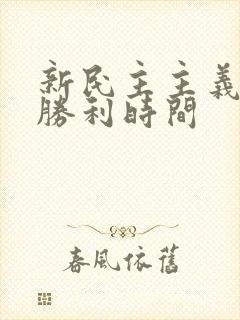 新民主主義
勝利時間
春風依舊